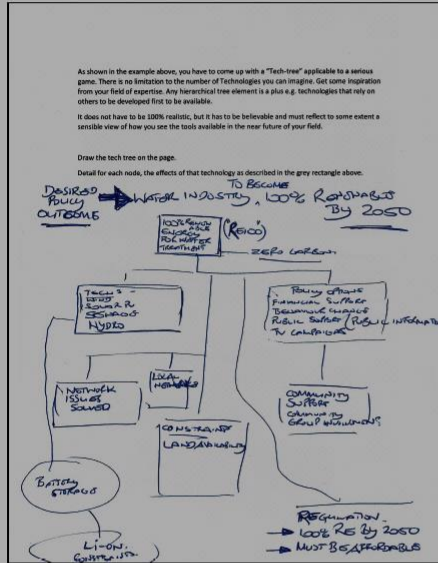 As shown in the example above, you have to come up with a "Tech-tree" applicable to a serious
game. There is no limitation to the number of Technologies you can imagine. Get some inspiration
from your field of expertise. Any hierarchical tree element is a plus e.g. technologies that rely on
others to be developed first to be available.
It does not have to be 100% realistic, but it has to be believable and must reflect to some extent a
sensible view of how you see the tools available in the near future of your field.
Draw the tech tree on the page.
Detail for each node, the effects of that technology as described in the grey rectangle above.
DESIRED
POLICY
OUTCOME
WATER INDUSTRY
TO BECOME
100% RENEWABLE
BY 2050
100% RENEW
ABLE
ENERGY
FOR WATER
TREATMENT
("RE100")
ZERO CARBON
TECHS -
WIND
SOLAR PV
SEWAGE
HYDRO
POLICY OPTIONS
FINANCIAL SUPPORT
BEHAVIOUR CHANGE
PUBLIC SUPPORT / PUBLIC INFORMATION
TV CAMPAIGNS
NETWORK
ISSUES
SOLVED
LOCAL
NETWORKS
CONSTRAINTS
LAND AVAILABILITY
COMMUNITY
SUPPORT
COMMUNITY
GROUP INVOLVEMENT
BATTERY
STORAGE
Li-ON.
CONSTRAINTS.
REGULATION
100% RE BY 2050
MUST BE AFFORDABLE